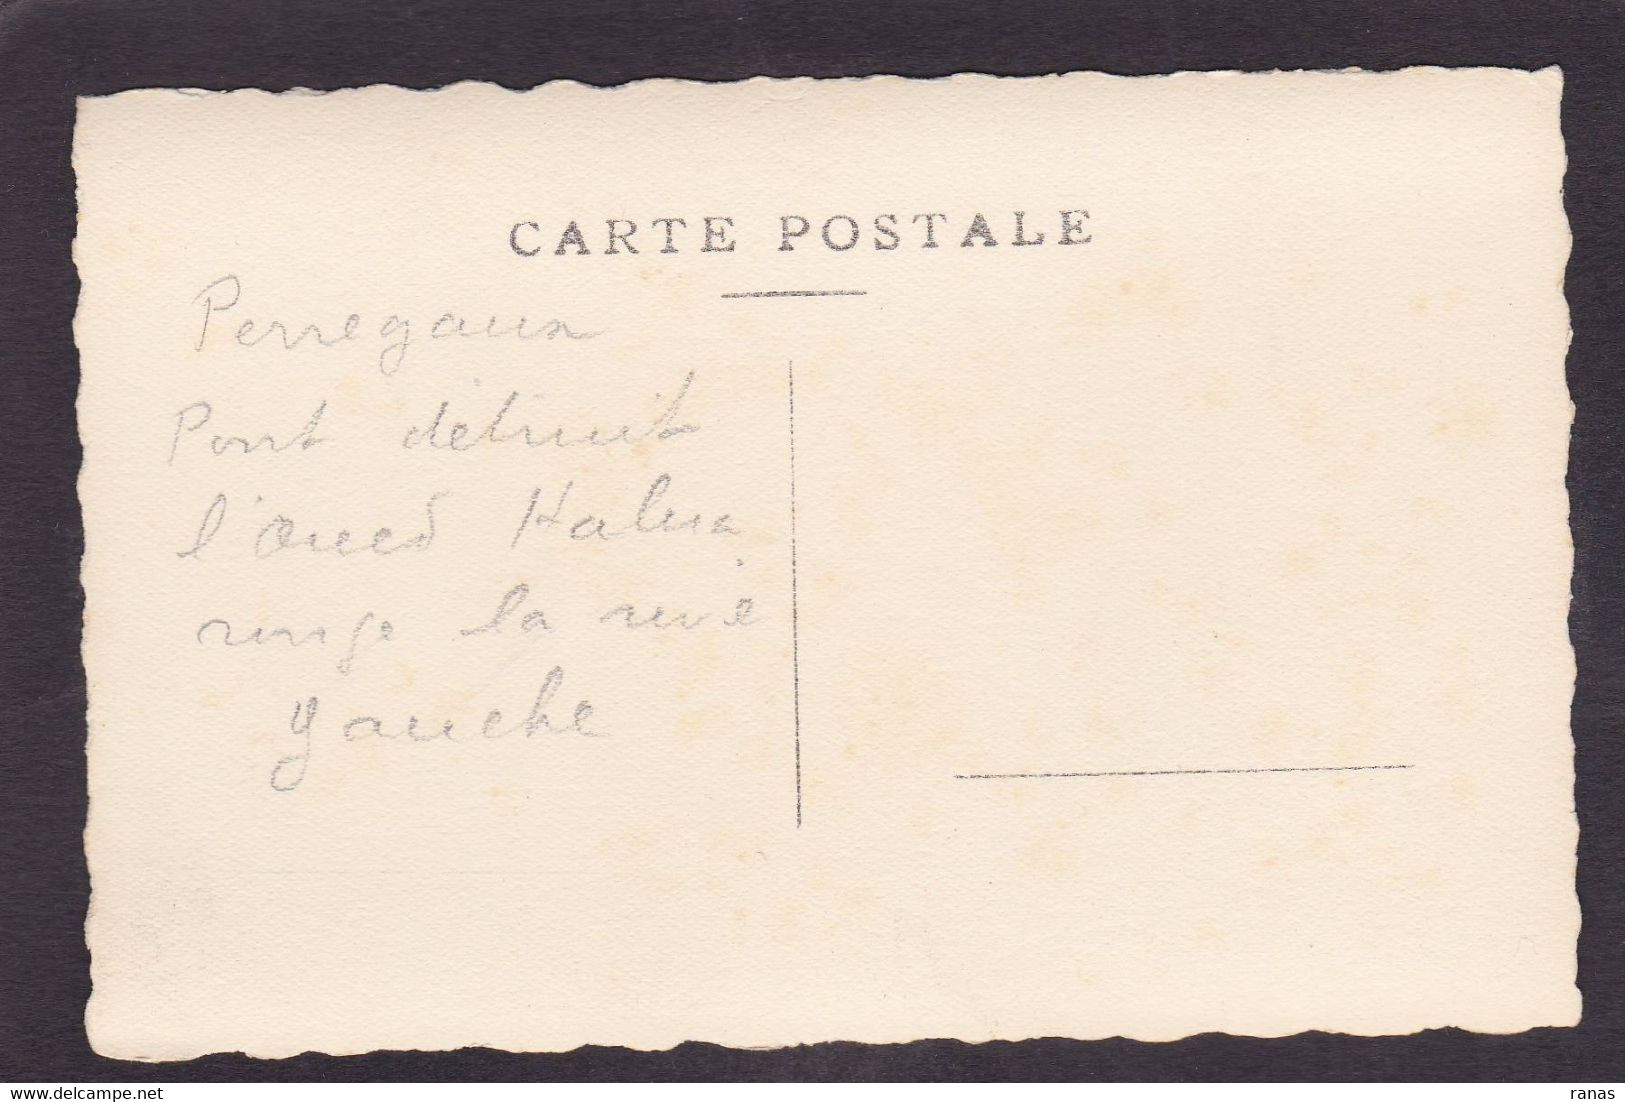 CARTE POSTALE
Perregaux
Pont détruit
l'Oued Habra
ronge la rive
gauche
delcampe.net
ranas